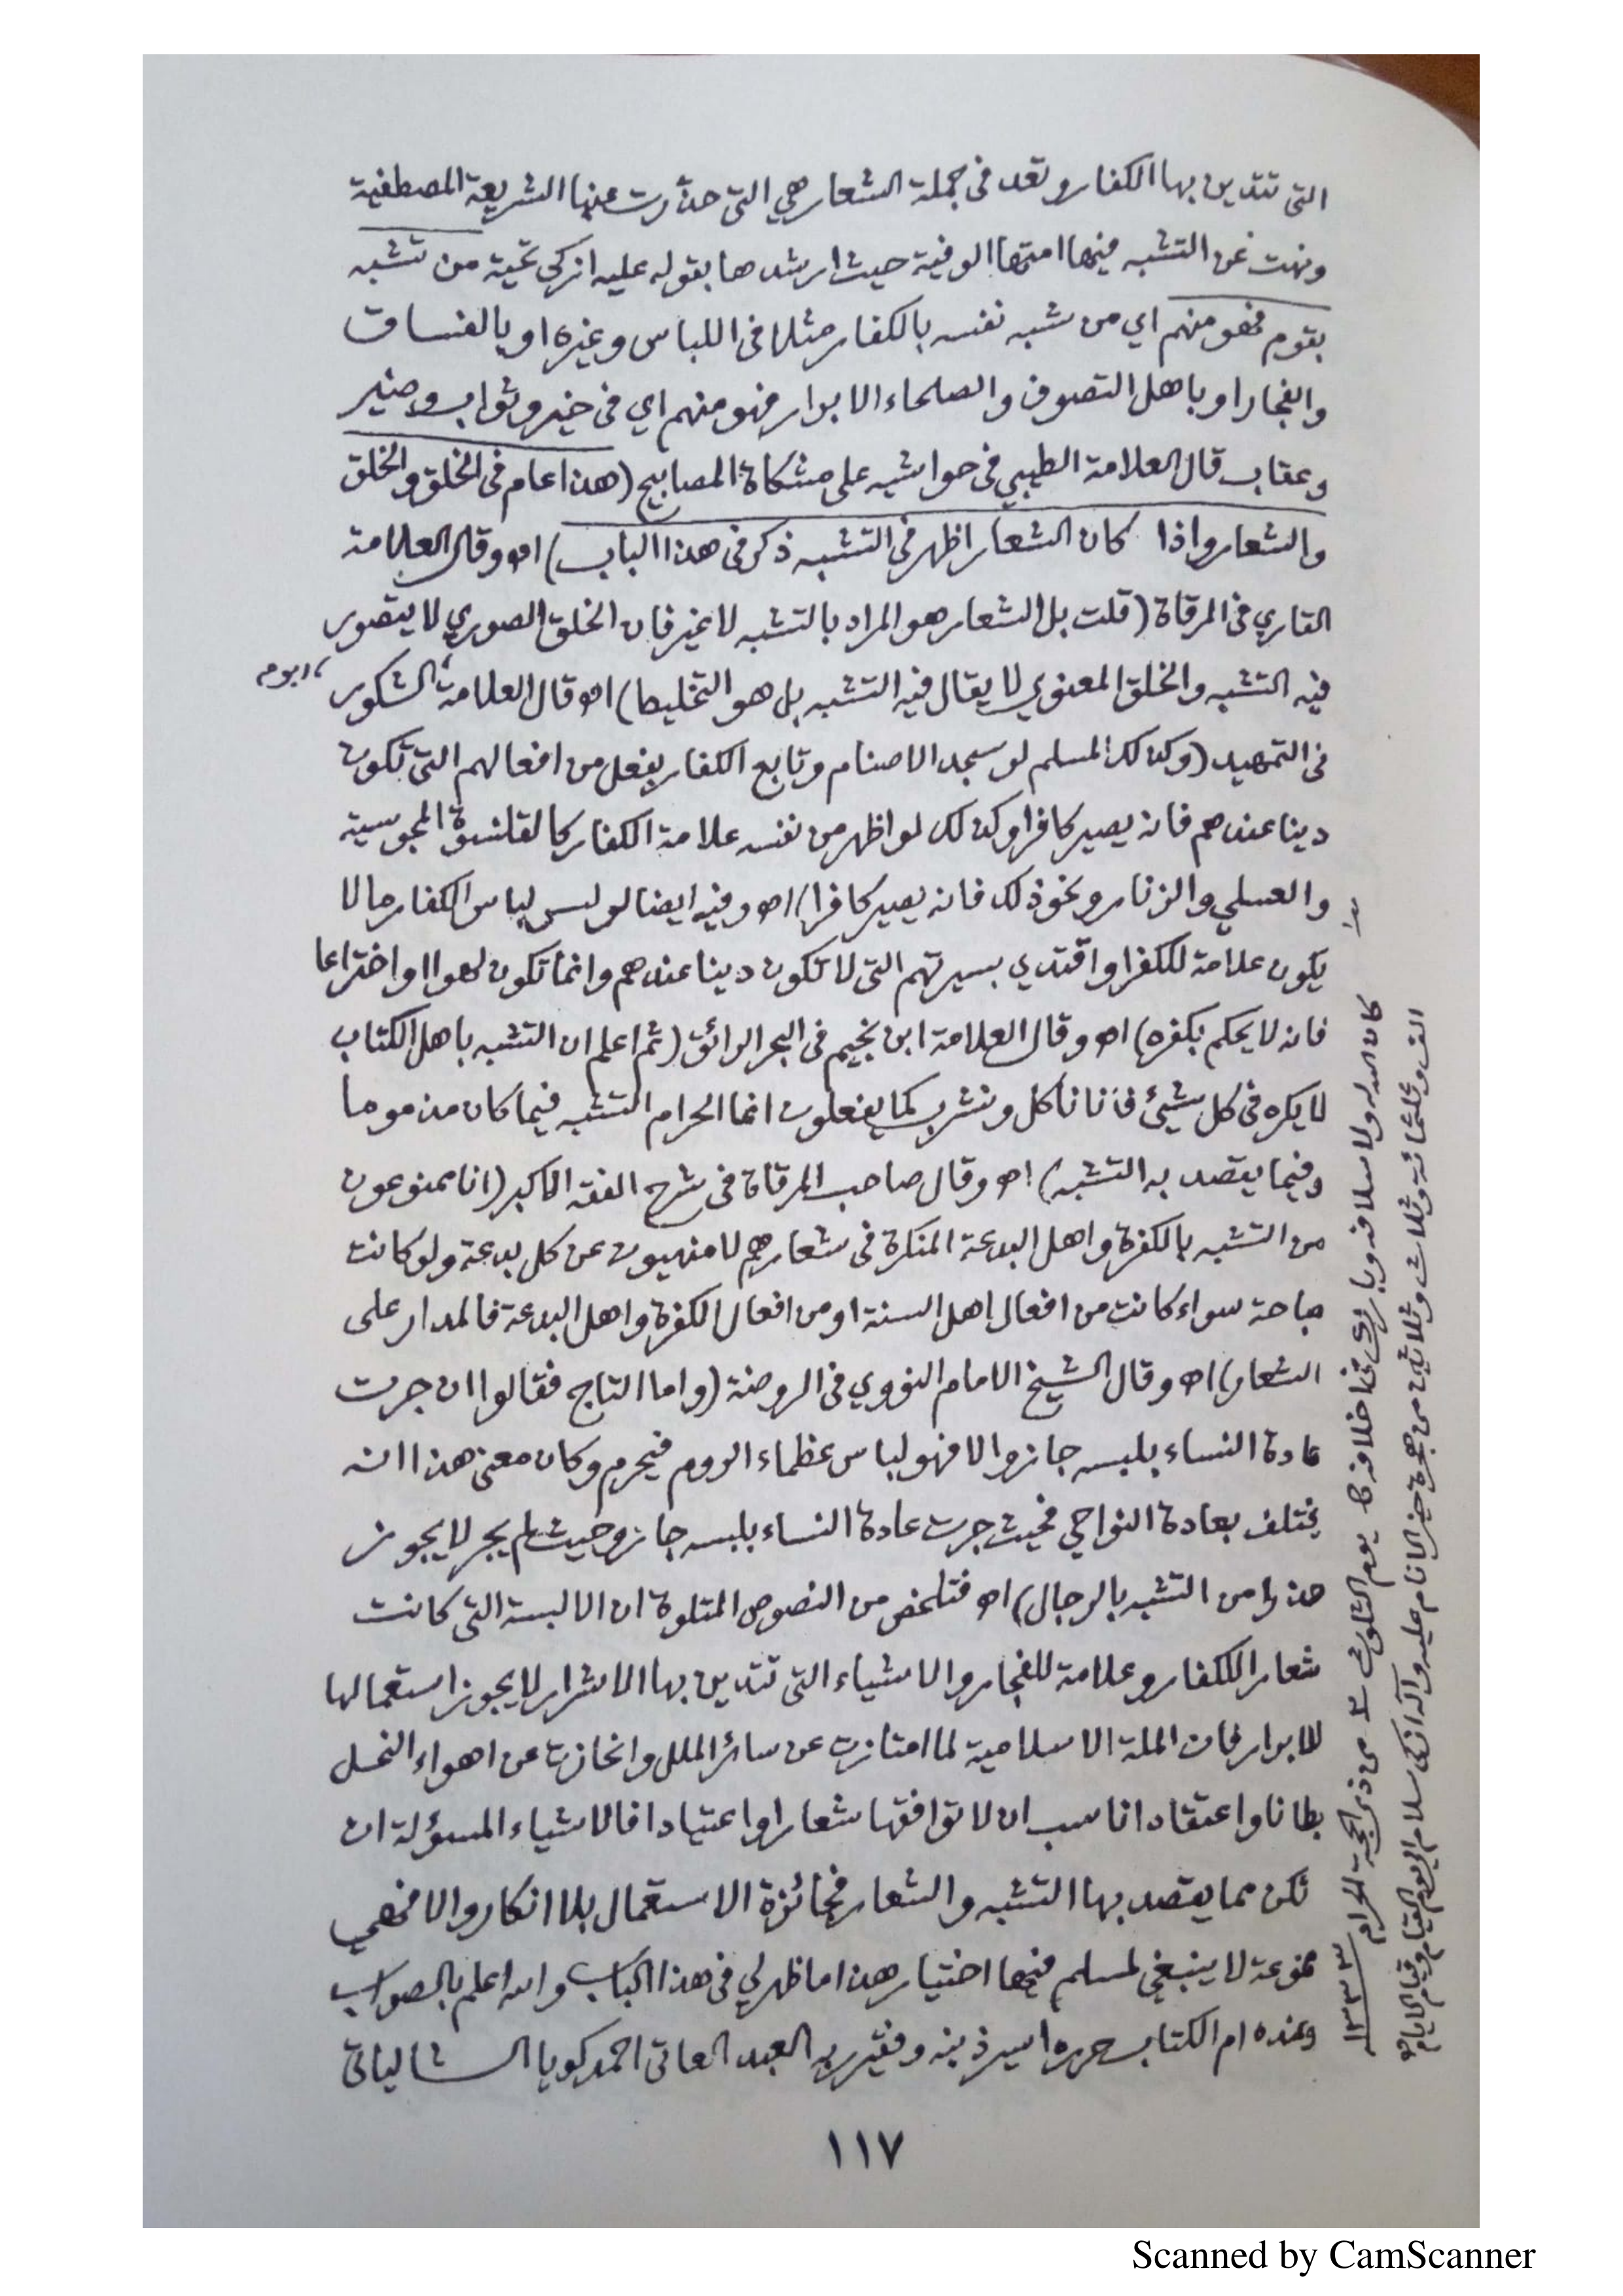 التى تتدين بها الكفار وتعد فى جملة الشعار هي التى حذرت عنها الشريعة المصطفية
ونهت عن التشبه فيها امتها الوفية حيث ارشدها بقوله عليه ازكى تحية من تشبه
بقوم فهو منهم اي من شبه نفسه بالكفار مثلا فى اللباس وغيره او بالفساق
والفجار او باهل التصوف والصلحاء الابرار فهو منهم اي فى خير وثواب وضير
وعقاب قال العلامة الطيبي فى حواشيه على مشكاة المصابيح (هذا عام فى الخلق والخلق
والشعار واذا كان الشعار اظهر فى التشبه ذكر فى هذا الباب) اه وقال العلامة
القاري فى المرقاة (قلت بل الشعار هو المراد بالتشبه لا غير فان الخلق الصوري لا يتصور
فيه التشبه والخلق المعنوي لا يقال فيه التشبه بل هو التخلق) اه قال العلامة الشكور
فى التمهيد (وكذلك المسلم لو سجد الاصنام وتابع الكفار بفعل من افعالهم التى تكون
دينا عندهم فانه يصير كافرا وكذلك لو اظهر من نفسه علامة الكفار كالقلنسوة المجوسية
والعسلي والزنار ونحو ذلك فانه يصير كافرا) اه وفيه ايضا لو لبس لباس الكفار مالا
يكون علامة للكفر او اقتدى بسيرتهم التى لا تكون دينا عندهم وانما تكون لهوا او اختراعا
فانه لا يحكم بكفره) اه وقال العلامة ابن نجيم فى البحر الرائق (ثم اعلم ان التشبه باهل الكتاب
لا يكره فى كل شيئ فانا ناكل ونشرب كما يفعلون انما الحرام التشبه فيما كان مذموما
وفيما يقصد به التشبه) اه وقال صاحب المرقاة فى شرح الفقه الاكبر (انا ممنوعون
من التشبه بالكفرة واهل البدعة المنكرة فى شعارهم لا منهيون عن كل بدعة ولو كانت
مباحة سواء كانت من افعال اهل السنة او من افعال الكفرة واهل البدعة فالمدار على
الشعار) اه وقال الشيخ الامام النووي فى الروضة (واما التاج فقالوا ان جرت
عادة النساء بلبسه جاز والا فهو لباس عظماء الروم فيحرم وكان معنى هذا انه
يختلف بعادة النواحي فحيث جرت عادة النساء بلبسه جاز وحيث لم يجر لا يجوز
حذرا من التشبه بالرجال) اه فتلخص من النصوص المتلوة ان الالبسة التى كانت
شعارا للكفار وعلامة للفجار والاشياء التى تتدين بها الاشرار لا يجوز استعمالها
للابرار فان الملة الاسلامية لما امتازت عن سائر الملل وانحازت عن اهواء النحل
بطانا واعتقادا ناسب ان لا توافقها شعارا واعتيادا فالاشياء المسؤلة ان
تكن مما يقصد بها التشبه والشعار فجائزة الاستعمال بلا انكار والا فهي
ممنوعة لا ينبغي لمسلم فيها اختيار هذا ما ظهر لي فى هذا الباب والله اعلم بالصواب
وعنده ام الكتاب حرره اسير ذنبه وفقير ربه العبد العاتى احمد كويا الشالياتى
كان الله له ولاسلافه وبارك فى اخلافه يوم الثلوث من ذى الحجة الحرام ١٣٣٣
الف وثلثمائة وثلاث وثلاثين من هجرة خير الانام عليه وآله ازكى سلام الى يوم القيام
١١٧
Scanned by CamScanner